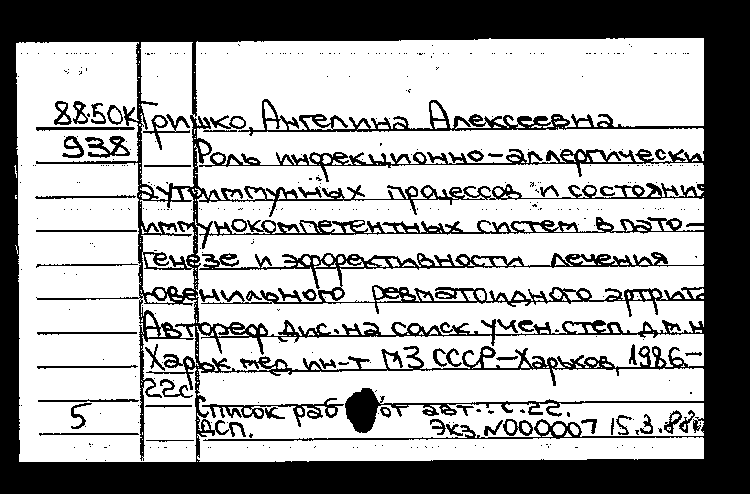 88-50К Гришко, Ангелина Алексеевна.
938 Роль инфекционно-аллергически
аутоиммунных процессов и состояния
иммунокомпетентных систем в пато-
генезе и эффективности лечения
ювенильного ревматоидного артрита
Автореф. дис. на соиск. учен. степ. д.м.н
Харьк. мед. ин-т МЗ СССР.-Харьков, 1986.-
22с
5 Список раб от авт.: с.22.
ДСП. Экз. N000007 15.3.88